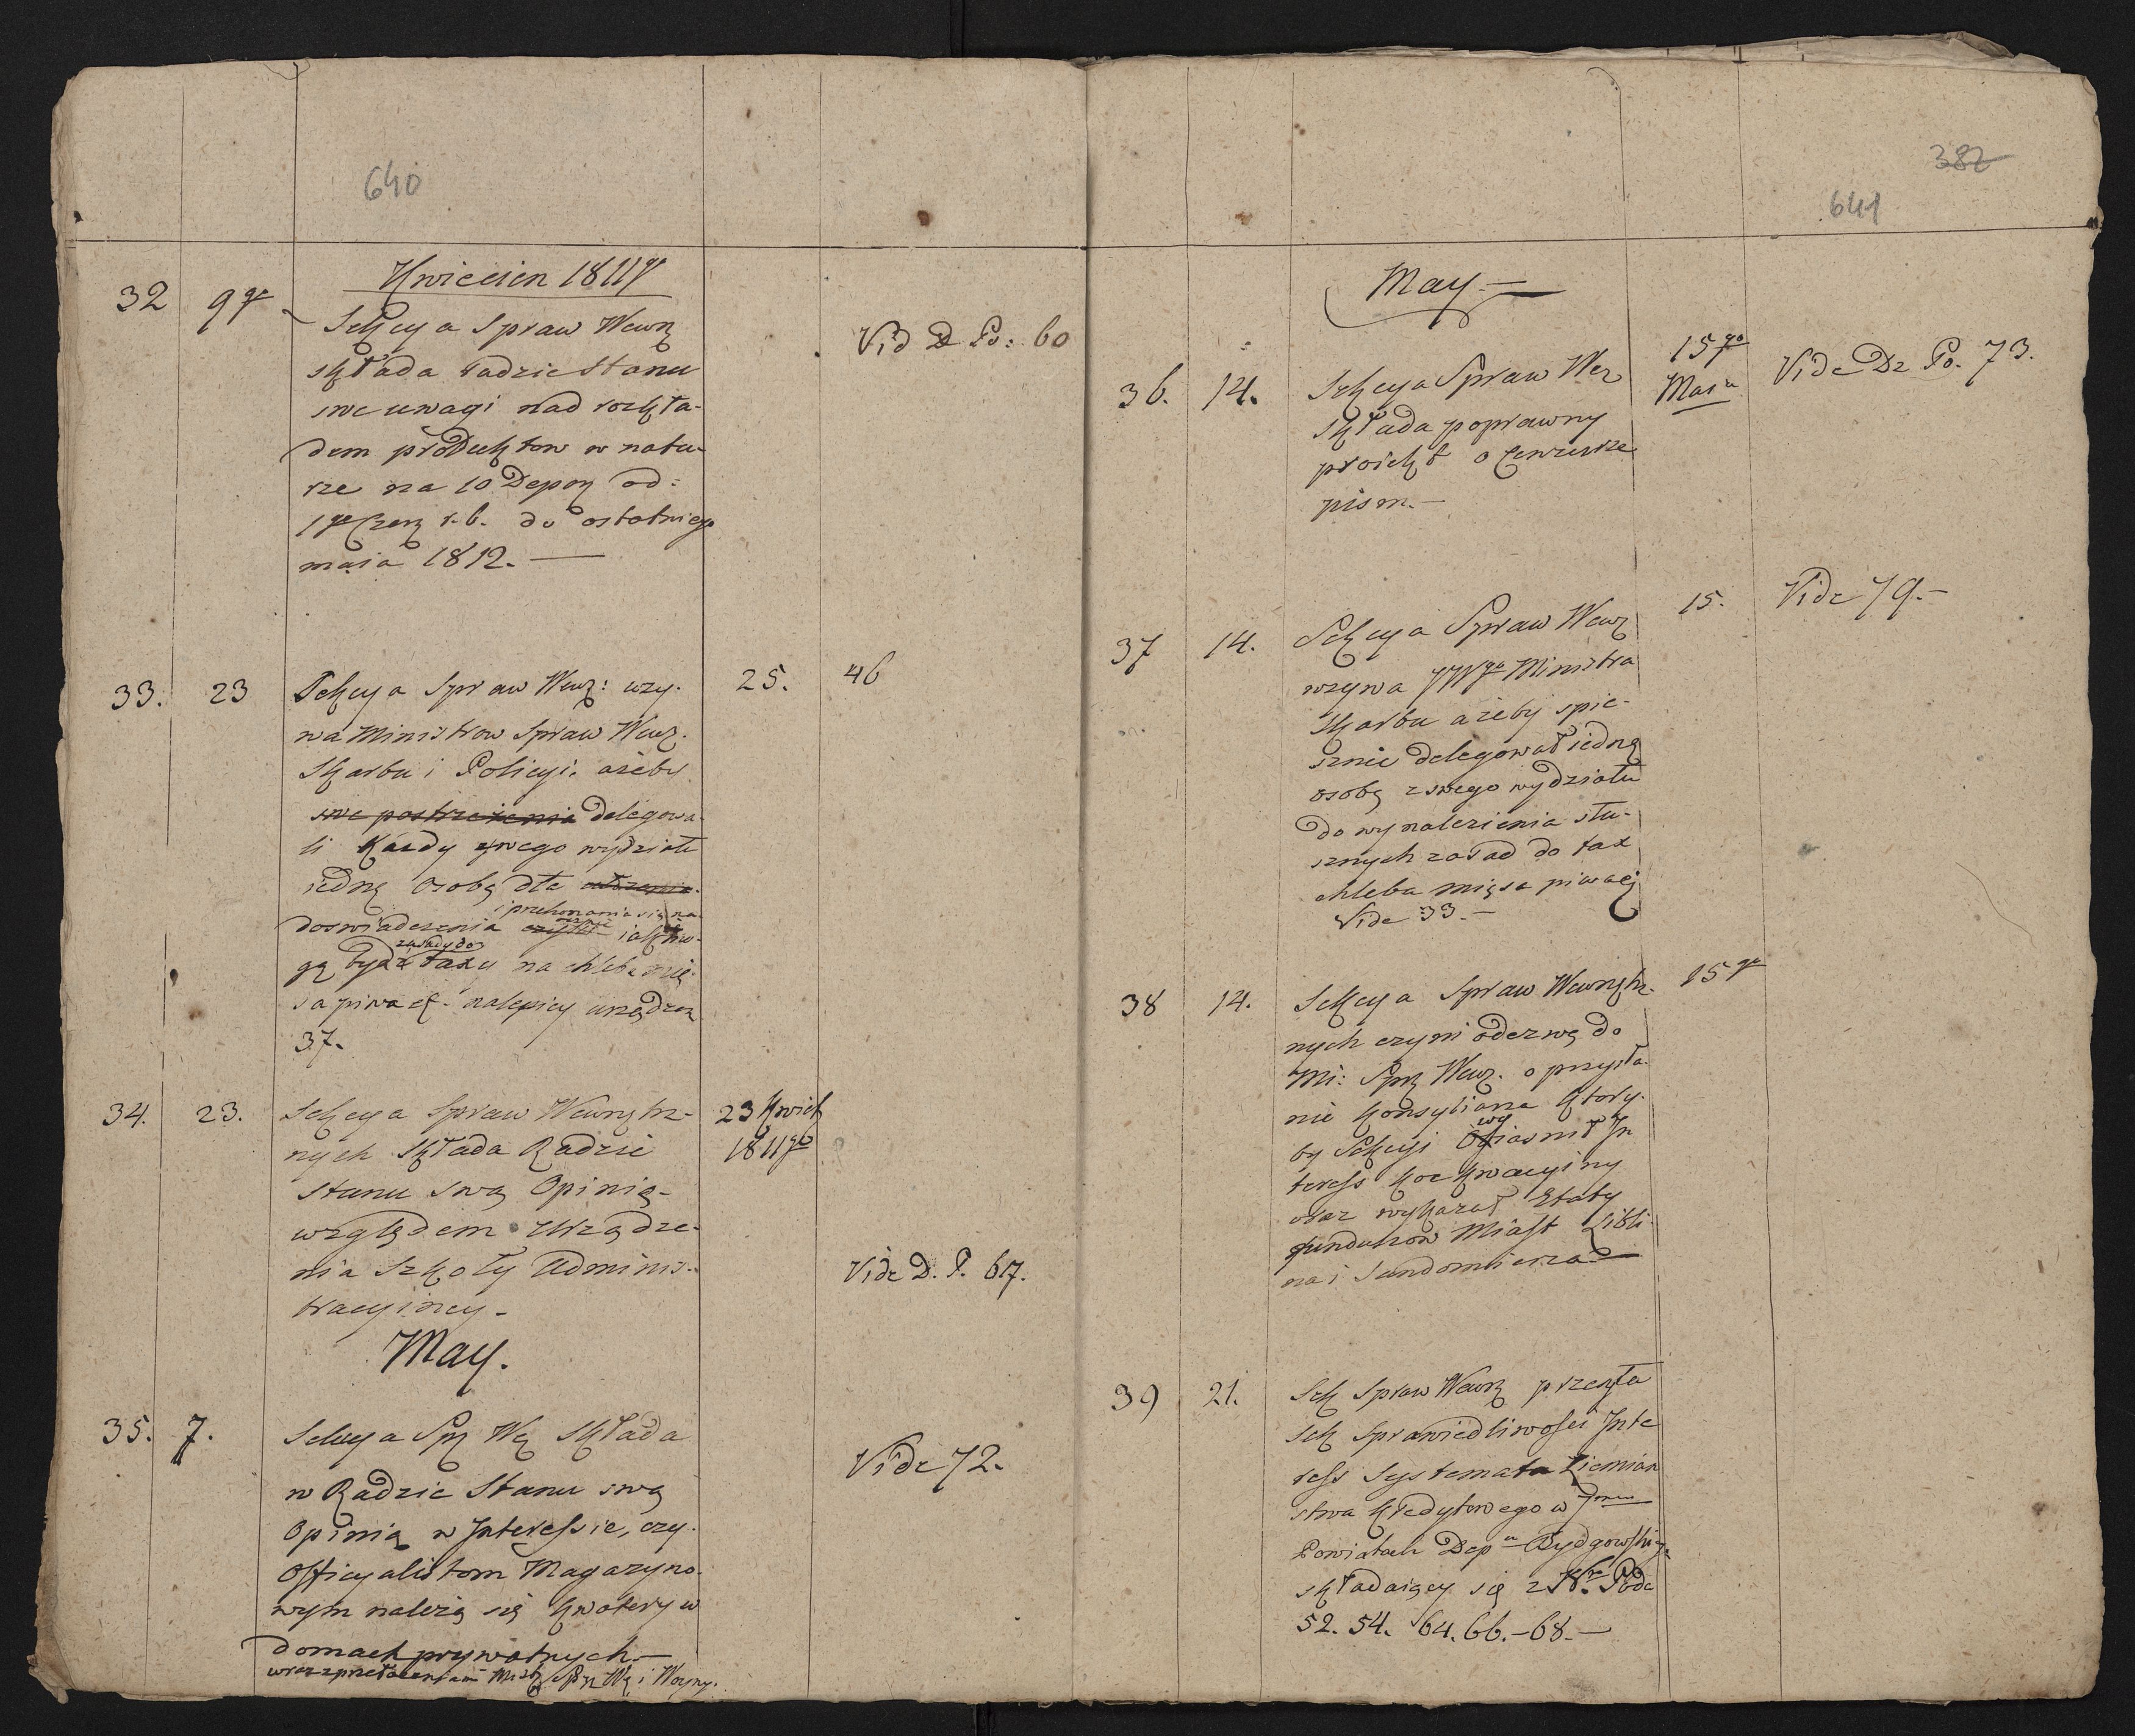 640
Kwiecien 1811 r
32 9go Sekcya Spraw Wewn
składa Radzie Stanu
swe uwagi nad rozkła-
dem produktow w natu-
rze na 10 Depar od
1go Czer r. b. do ostatniego
maia 1812. —
Vid D Po: 60
33. 23 Sekcya Spraw Wew: wzy-
wa Ministrow Spraw Wew.
Skarbu i Policyi, ażeby
swe postrzeżenia delegowa-
li Każdy z swego wydziału
iedną Osobę dla
doswiadczenia i przekonania się na
iak mo-
gą bydź zasady do taxy na chleb mię-
sa piwa etc. nalepiey urządzon
37.
25. 46
34. 23. Sekcya Spraw Wewnętrz-
nych składa Radzie
Stanu swą Opinię
względem Urządze-
nia Szkoły Adminis-
tracyiney.
23 Kwiet
1811go
Vide D. P. 67.
May.
35. 7. Sekcya Spr We Składa
w Radzie Stanu swą
Opinią w Interessie, czy
Officyalistom Magazyno-
wym należą się kwatery w
domach prywatnych. —
wraz z przełożeniami Mistr Spr We i Woyny.
382
641
May. —
36. 14. Sekcya Spraw We
składa poprawny
proiekt o Cenzurze
pism. —
15go
Maia
Vide Dz Po. 73.
37 14. Sekcya Spraw Wew
wzywa JWgo Ministra
Skarbu ażeby spie-
sznie delegował iedną
osobę z swego wydziału
do wynalezienia słu-
sznych zasad do tax
chleba mięsa piwa ej
Vide 33. —
15. Vide 79. —
38 14. Sekcya Spraw Wewnętrz-
nych czyni odezwę do
Mi: Spr Wew. o przysła-
nie Konsyliarza który-
by Sekcyi wyiasnił In
teress
oraz wykazał Etaty
funduszow Miast Lubli
na i Sandomierza —
15go
39 21. Sek Spraw Wewn przesyła
Sek Sprawiedliwości Inte
ress Systemata Ziemian
stwa Kredytowego w 7miu
Powiatach Depu Bydgowskie
składaiący się z Nrw Podc
52. 54. 64. 66. - 68. —